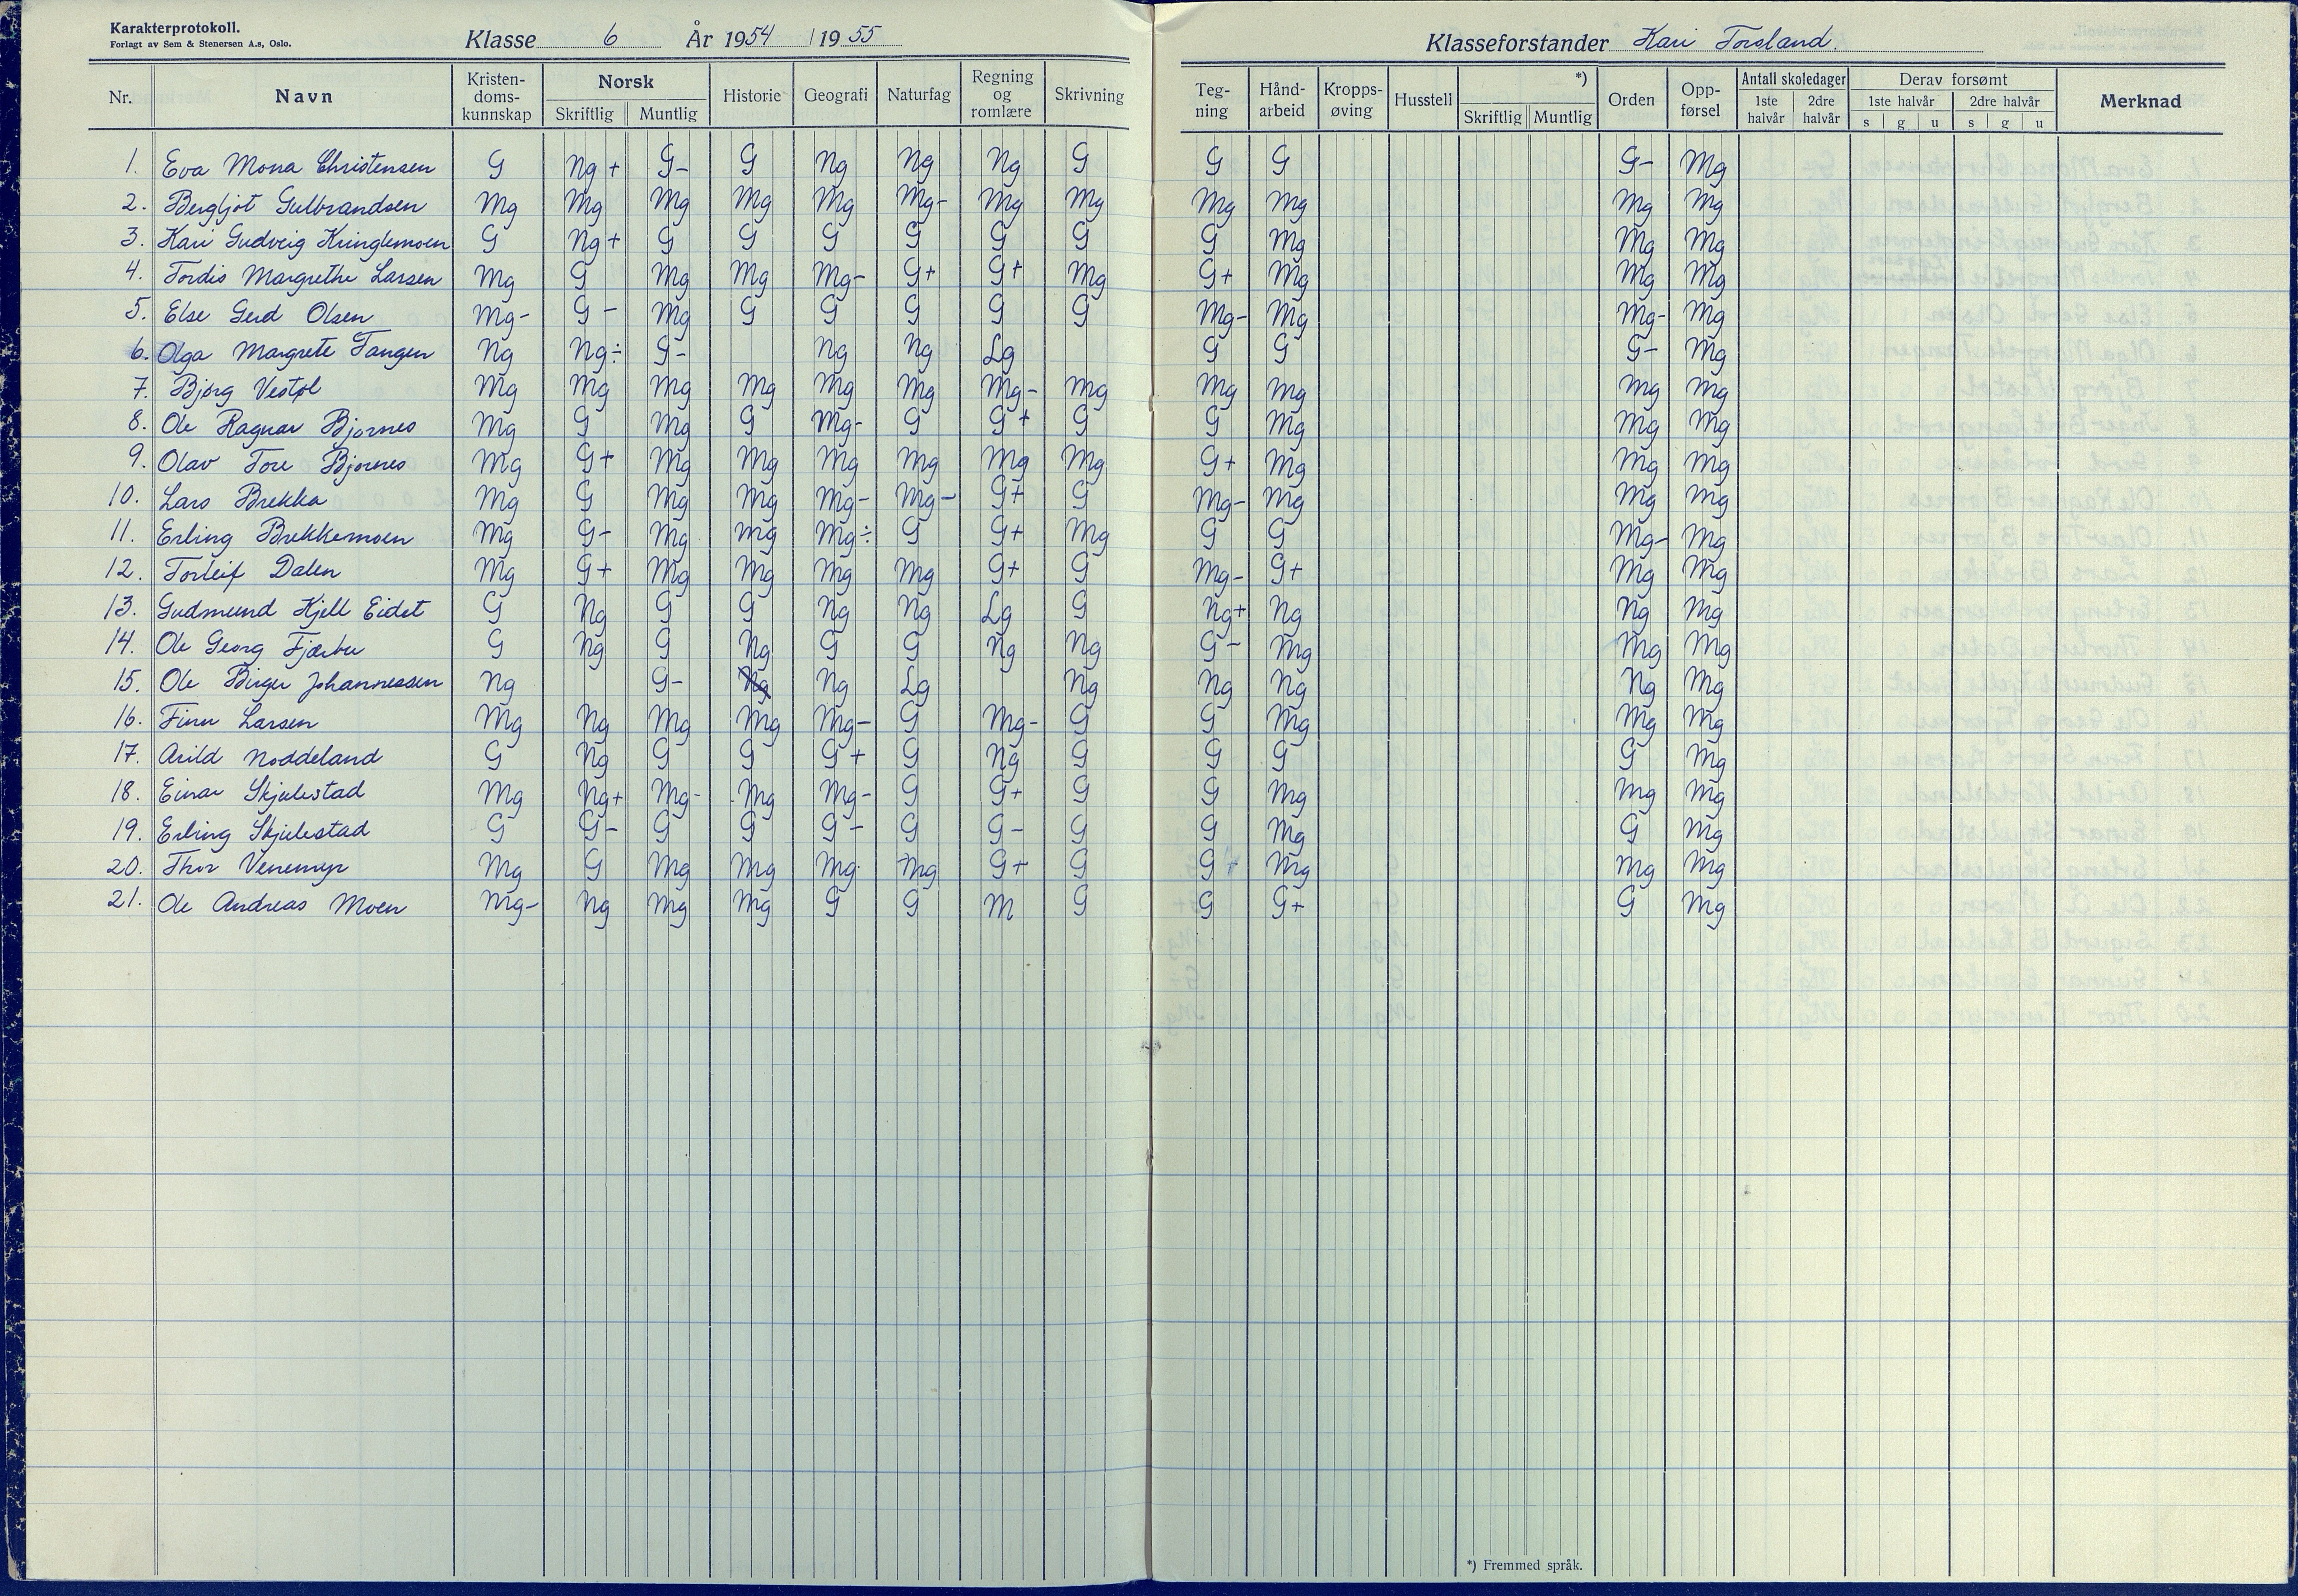 Karakterprotokoll.
Forlagt av Sem & Stenersen A.s, Oslo.
Klasse 6 År 1954 / 1955
Klasseforstander Kari Torsland.
Nr. Navn Kristendoms-kunnskap Norsk Skriftlig Muntlig Historie Geografi Naturfag Regning og romlære Skrivning Teg-ning Hånd-arbeid Kropps-øving Husstell *) Skriftlig Muntlig Orden Opp-førsel Antall skoledager 1ste halvår 2dre halvår Derav forsømt 1ste halvår s g u 2dre halvår s g u Merknad
1. Eva Mona Christensen G Ng+ G- G Ng Ng Ng G G G G- Mg
2. Bergljot Gulbrandsen Mg Mg Mg Mg Mg Mg- Mg Mg Mg Mg Mg Mg
3. Kari Gudveig Kringlemoen G Ng+ G G G G G G G Mg Mg Mg
4. Tordis Margrethe Larsen Mg G Mg Mg Mg- G+ G+ Mg G+ Mg Mg Mg
5. Else Gerd Olsen Mg- G- Mg G G G G G Mg- Mg Mg- Mg
6. Olga Margrete Tangen Ng Ng÷ G- Ng Ng Lg G G G- Mg
7. Bjørg Vestøl Mg Mg Mg Mg Mg Mg Mg- Mg Mg Mg Mg Mg
8. Ole Ragnar Bjørnes Mg G Mg G Mg- G G+ G G Mg Mg Mg
9. Olav Tore Bjørnes Mg G+ Mg Mg Mg Mg Mg Mg G+ Mg Mg Mg
10. Lars Brekka Mg G Mg Mg Mg- Mg- G+ G Mg- Mg Mg Mg
11. Erling Brekkemoen Mg G- Mg Mg Mg÷ G G+ Mg G G Mg- Mg
12. Torleif Dalen Mg G+ Mg Mg Mg Mg G+ G Mg- G+ Mg Mg
13. Gudmund Kjell Eidet G Ng G G Ng Ng Lg G Ng+ Ng Ng Mg
14. Ole Georg Fjærbu G Ng G Ng G G Ng Ng G- Mg Mg Mg
15. Ole Birger Johannessen Ng G- Ng Ng Lg Ng Ng Ng Ng Mg
16. Finn Larsen Mg Ng Mg Mg Mg- G Mg- G G Mg Mg Mg
17. Arild Noddeland G Ng G G G+ G Ng G G G G Mg
18. Einar Skjulestad Mg Ng+ Mg- Mg Mg- G G+ G G Mg Mg Mg
19. Erling Skjulestad G G- G G G- G G- G G Mg G Mg
20. Thor Venemyr Mg G Mg Mg Mg Mg G+ G G+ Mg Mg Mg
21. Ole Andreas Moen Mg- Ng Mg Mg G G M G G G+ G Mg
*) Fremmed språk.